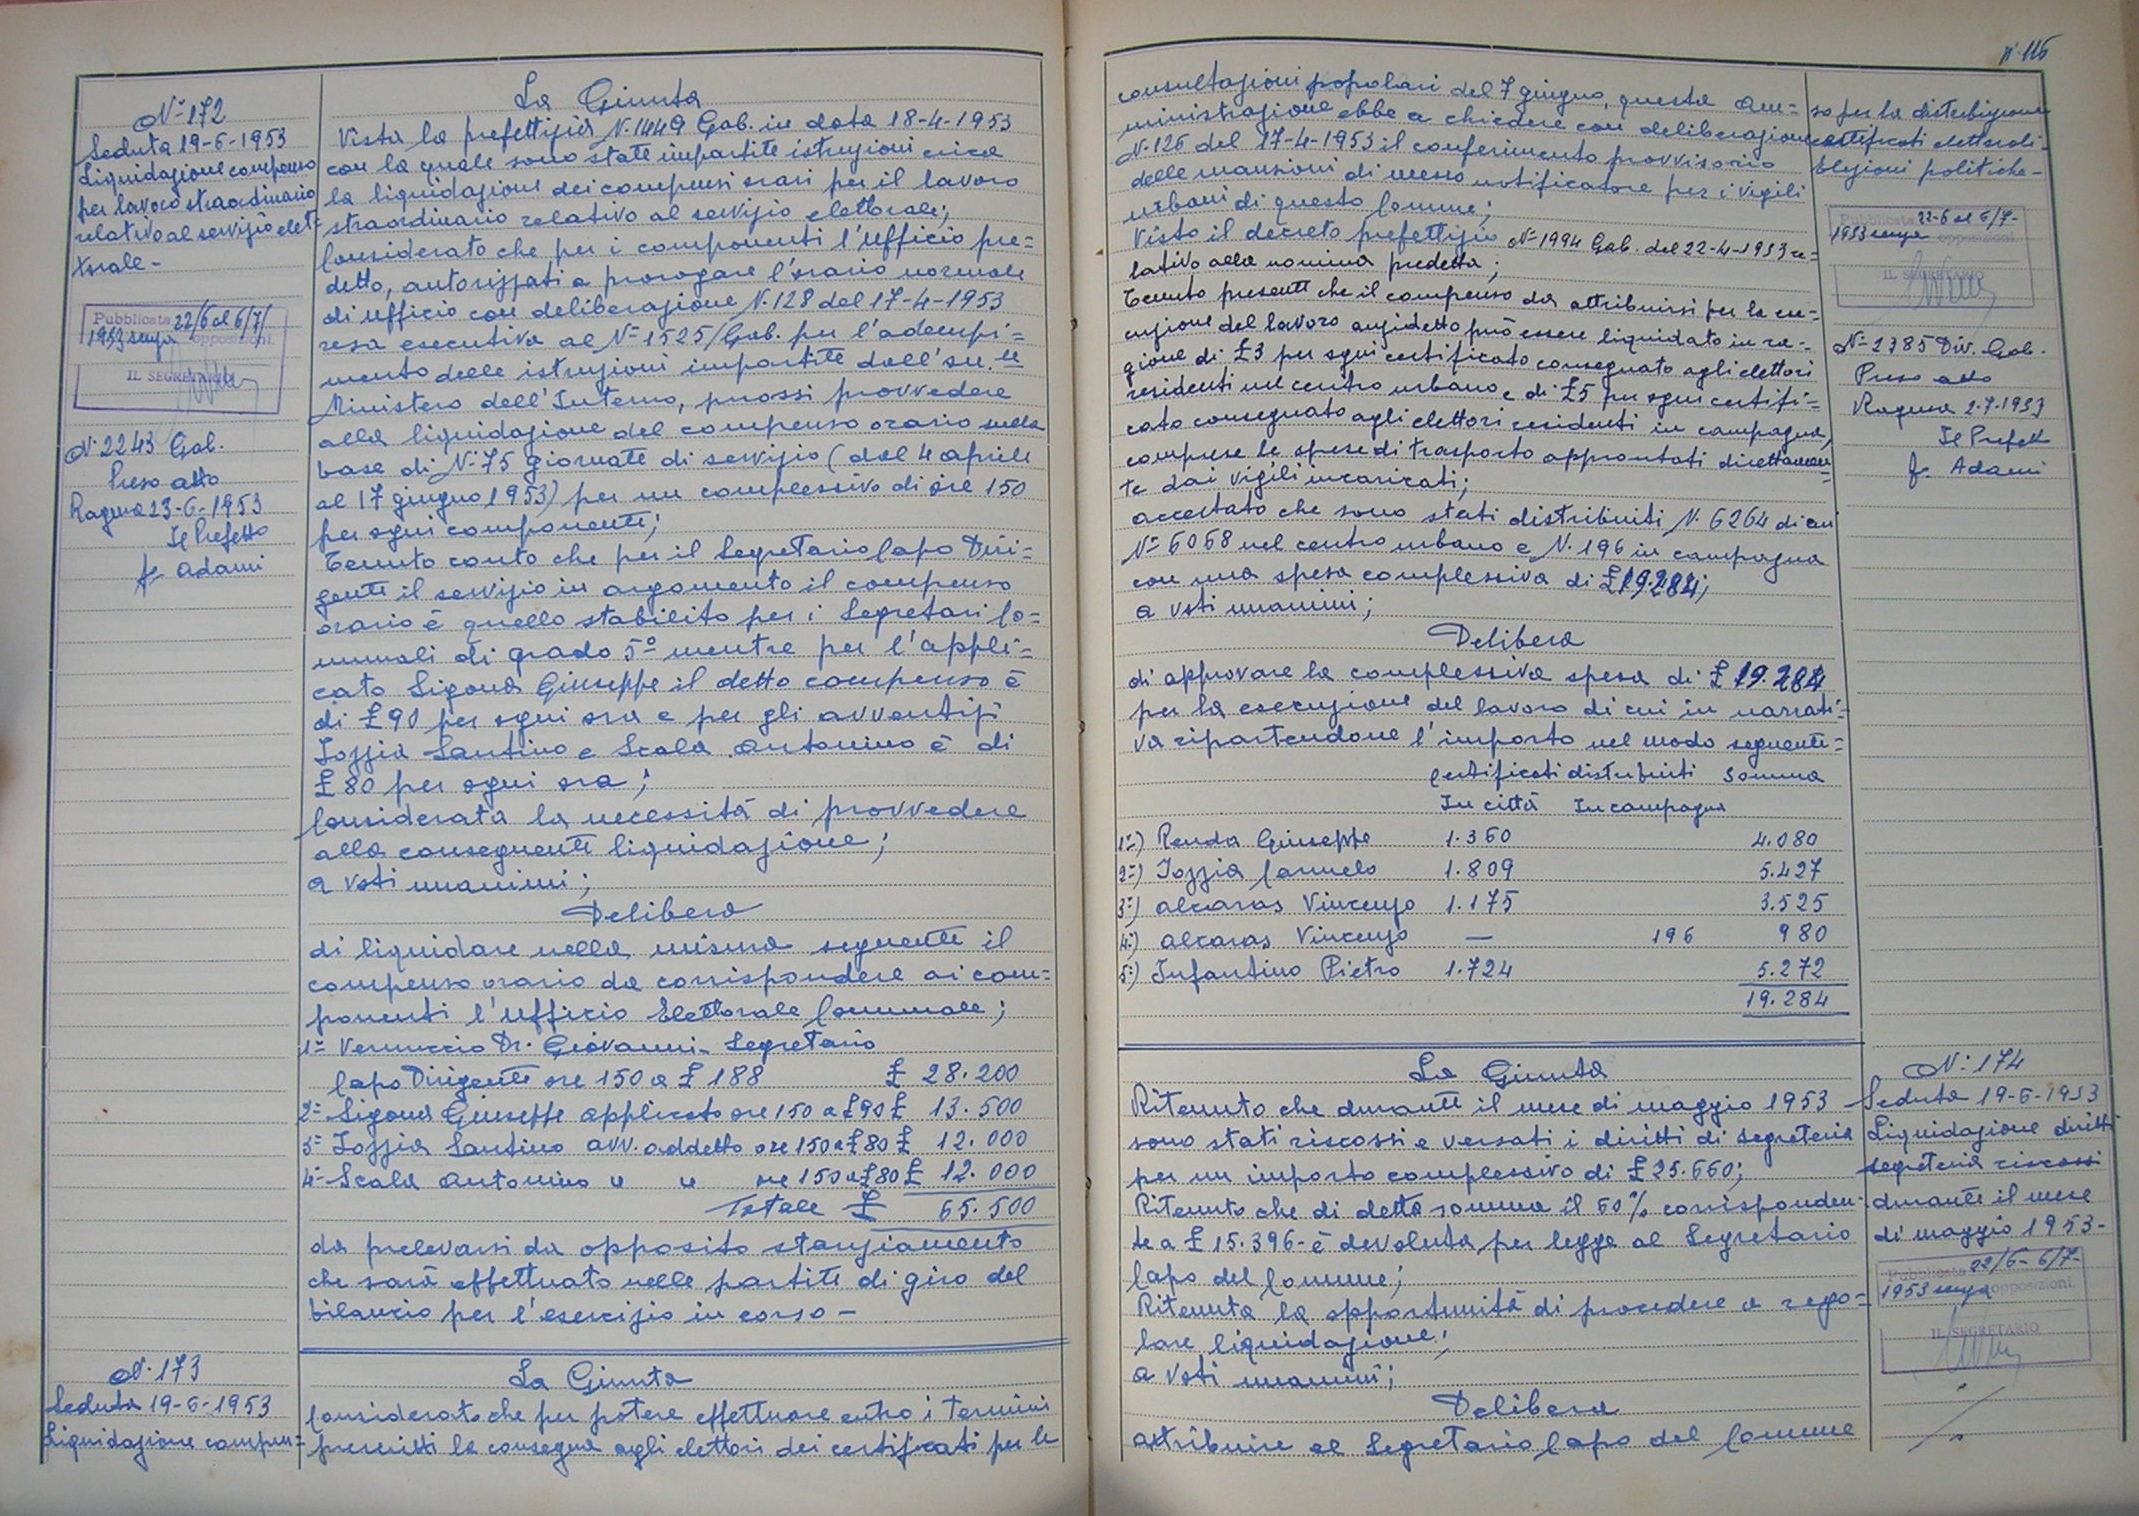 N° 172
Seduta 19-6-1953
Liquidazione compenso
per lavoro straordinario
relativo al servizio elet=
torale -
Pubblicata 22/6 al 6/7/
1953 senza opposizioni
IL SEGRETARIO
N. 2243 Gab.
Preso atto
Ragusa 23-6-1953
Il Prefetto
f. Adami
La Giunta
Vista la prefettizia N. 1449 Gab. in data 18-4-1953
con la quale sono state impartite istruzioni circa
la liquidazione dei compensi orari per il lavoro
straordinario relativo al servizio elettorale;
Considerato che per i componenti l'ufficio pre=
detto, autorizzati a prorogare l'orario normale
di ufficio con deliberazione N. 128 del 17-4-1953
resa esecutiva al N° 1525/Gab. per l'adempi=
mento delle istruzioni impartite dall'on.le
Ministero dell'Interno, puossi provvedere
alla liquidazione del compenso orario sulla
base di N. 75 giornate di servizio (dal 4 aprile
al 17 giugno 1953) per un complessivo di ore 150
per ogni componente;
Tenuto conto che per il Segretario Capo Diri=
gente il servizio in argomento il compenso
orario è quello stabilito per i Segretari Co=
munali di grado 5° mentre per l'appli=
cato Sigona Giuseppe il detto compenso è
di £ 90 per ogni ora e per gli avventizi
Iozzia Santino e Scala Antonino è di
£ 80 per ogni ora;
Considerata la necessità di provvedere
alla conseguente liquidazione;
a voti unanimi;
Delibera
di liquidare nella misura seguente il
compenso orario da corrispondere ai com=
ponenti l'ufficio Elettorale Comunale;
1° Vernuccio Dr. Giovanni - Segretario
Capo Dirigente ore 150 a £ 188 £ 28.200
2° Sigona Giuseppe applicato ore 150 a £ 90 £ 13.500
3° Iozzia Santino avv. addetto ore 150 a £ 80 £ 12.000
4° Scala Antonino " " ore 150 a £ 80 £ 12.000
Totale £ 65.500
da prelevarsi da apposito stanziamento
che sarà effettuato nelle partite di giro del
bilancio per l'esercizio in corso -
N. 173
Seduta 19-6-1953
Liquidazione compen=
La Giunta
Considerato che per potere effettuare entro i termini
prescritti la consegna agli elettori dei certificati per le
N. 116
consultazioni popolari del 7 giugno, questa Am=
ministrazione ebbe a chiedere con deliberazione
N. 126 del 17-4-1953 il conferimento provvisorio
delle mansioni di messo notificatore per i vigili
urbani di questo Comune;
Visto il decreto prefettizio N° 1994 Gab. del 22-4-1953 re=
lativo alla nomina predetta;
Tenuto presente che il compenso da attribuirsi per la ese=
cuzione del lavoro anzidetto può essere liquidato in ra=
gione di £ 3 per ogni certificato consegnato agli elettori
residenti nel centro urbano e di £ 5 per ogni certifi=
cato consegnato agli elettori residenti in campagna,
comprese le spese di trasporto approntati direttamen=
te dai vigili incaricati;
accertato che sono stati distribuiti N. 6264 di cui
N° 6068 nel centro urbano e N. 196 in campagna
con una spesa complessiva di £ 19.284;
a voti unanimi;
Delibera
di approvare la complessiva spesa di £ 19.284
per la esecuzione del lavoro di cui in narrati=
va ripartendone l'importo nel modo seguente=
Certificati distribuiti Somma
In città In campagna
1°) Renda Giuseppe 1.360 4.080
2°) Iozzia Carmelo 1.809 5.427
3°) Alcaras Vincenzo 1.175 3.525
4°) Alcaras Vincenzo — 196 980
5°) Infantino Pietro 1.724 5.272
19.284
so per la distribuzione
certificati elettorali -
Elezioni politiche -
Pubblicata 22-6 al 6/7-
1953 senza opposizioni
IL SEGRETARIO
N° 2385 Div. Gab.
Preso atto
Ragusa 2-7-1953
Il Prefetto
f. Adami
La Giunta
Ritenuto che durante il mese di maggio 1953
sono stati riscossi e versati i diritti di segreteria
per un importo complessivo di £ 25.660;
Ritenuto che di detta somma il 60% corrisponden=
te a £ 15.396 - è devoluta per legge al Segretario
Capo del Comune;
Ritenuta la opportunità di procedere a rego=
lare liquidazione;
a voti unanimi;
Delibera
attribuire al Segretario Capo del Comune
N. 174
Seduta 19-6-1953
Liquidazione diritti
segreteria riscossi
durante il mese
di maggio 1953 -
Pubblicata 22/6 - 6/7-
1953 senza opposizioni
IL SEGRETARIO